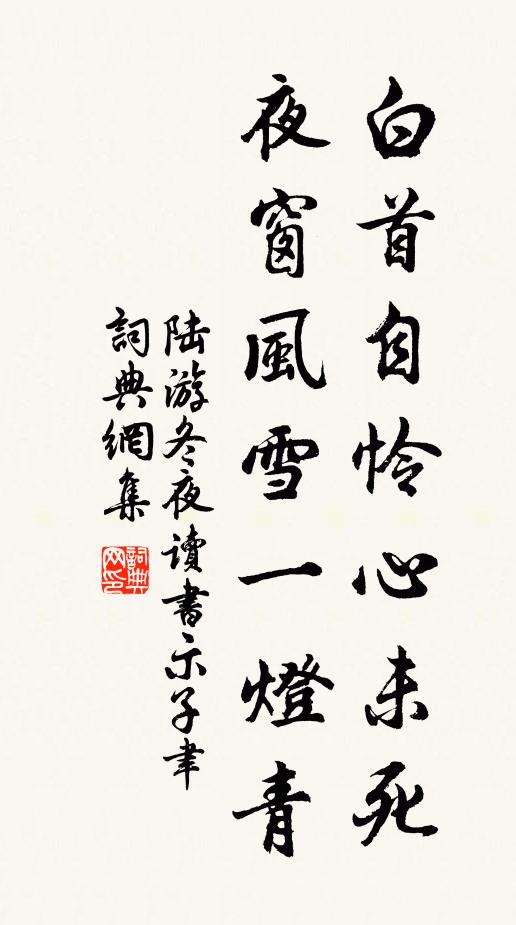 白首自怜心未死
夜窗風雪一燈青
陆游冬夜讀書示子聿
詞典網集
詞典
网印